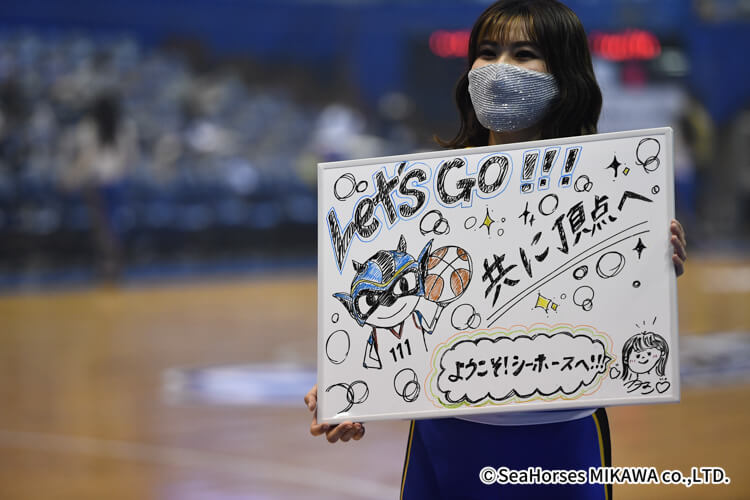 Let's GO!!!
共に頂点へ
111
ようこそ!シーホースへ!!!
©SeaHorses MIKAWA co.,LTD.